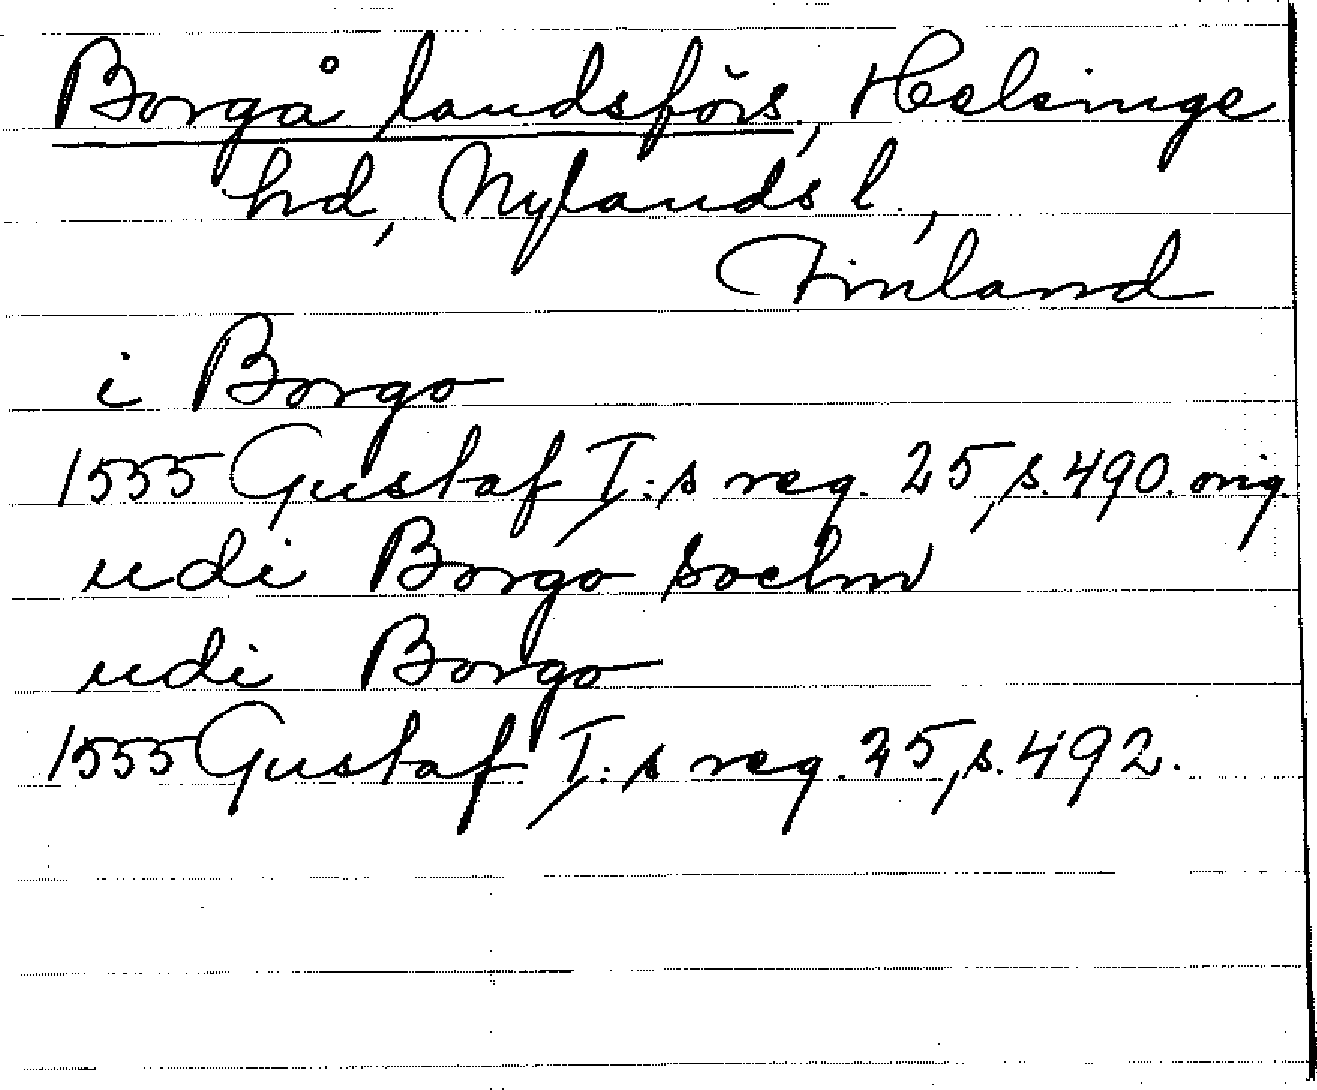 Borgå landsförs., Helsinge
hd, Nylands l.,
Finland
i Borgo
1555 Gustaf I:s reg. 25, s. 490. orig.
udi Borgo sochn
udi Borgo
1555 Gustaf I:s reg. 25, s. 492.